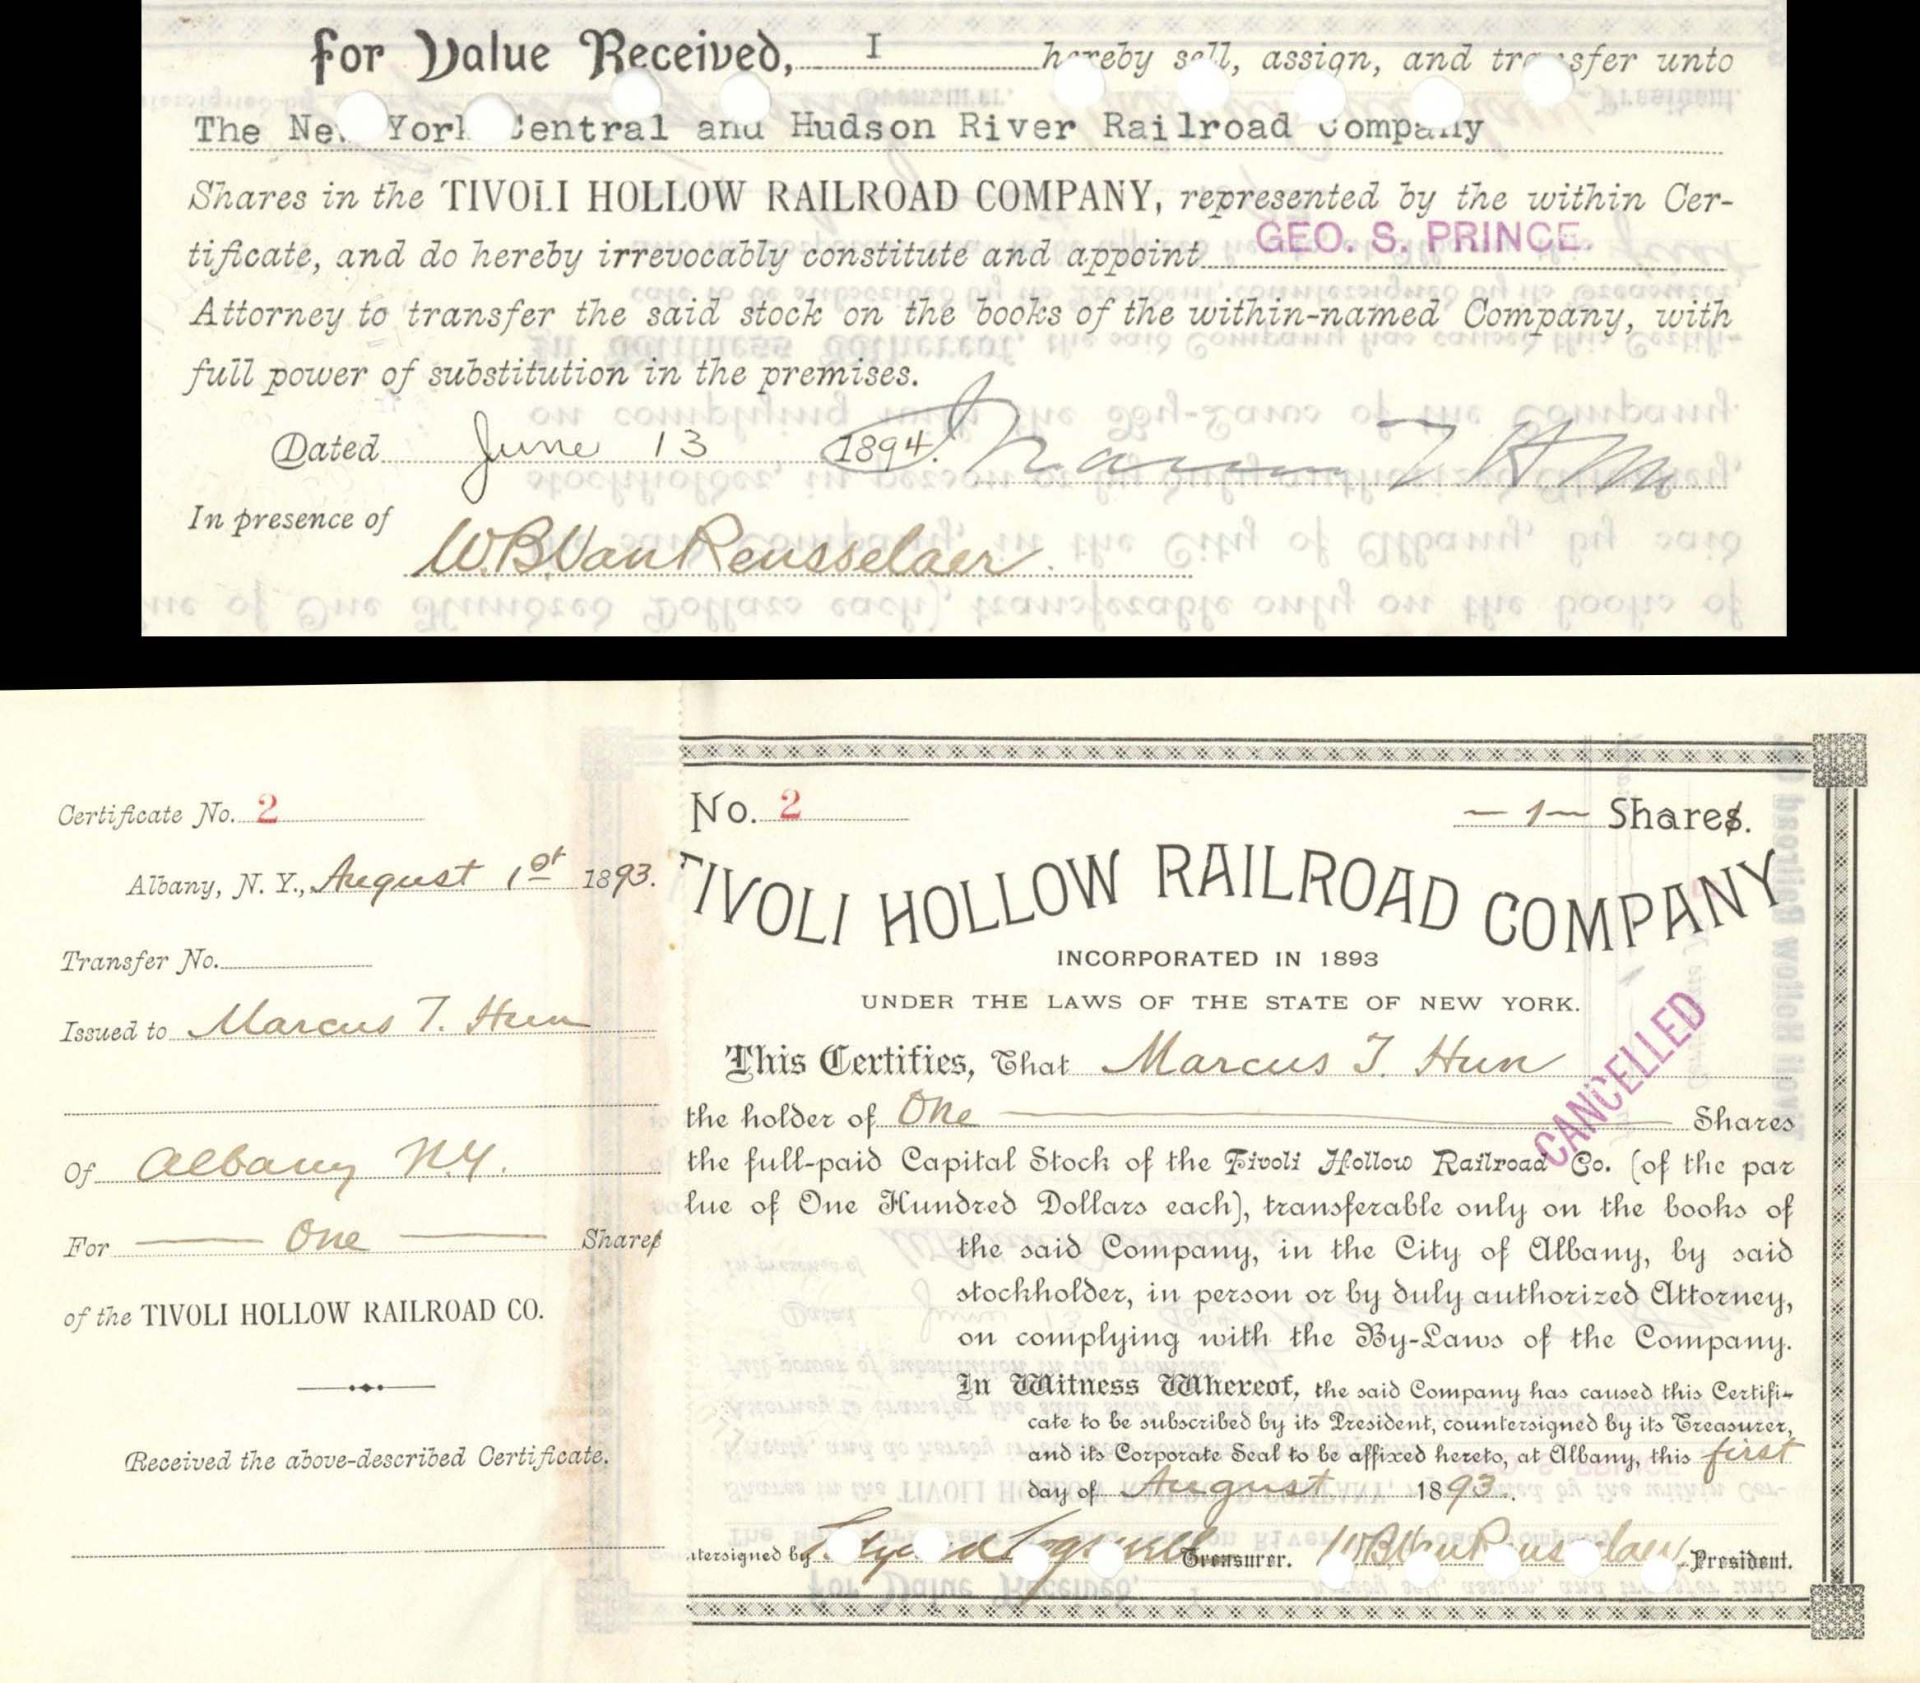 For Value Received, I hereby sell, assign, and transfer unto
The New York Central and Hudson River Railroad Company
Shares in the TIVOLI HOLLOW RAILROAD COMPANY, represented by the within Cer-
GEO. S. PRINCE.
tificate, and do hereby irrevocably constitute and appoint
Attorney to transfer the said stock on the books of the within-named Company, with
full power of substitution in the premises.
Dated June 13 1894. Marcus T. Hun
In presence of
W.B. Van Rensselaer
Certificate No. 2
Albany, N. Y., August 1st 1893.
Transfer No.
Issued to Marcus T. Hun
Of Albany N.Y.
For One Shares
of the TIVOLI HOLLOW RAILROAD CO.
Received the above-described Certificate.
No. 2 — 1 — Shares.
TIVOLI HOLLOW RAILROAD COMPANY
INCORPORATED IN 1893
UNDER THE LAWS OF THE STATE OF NEW YORK.
CANCELLED
This Certifies, That Marcus T. Hun
the holder of One Shares
the full-paid Capital Stock of the Tivoli Hollow Railroad Co. (of the par
lue of One Hundred Dollars each), transferable only on the books of
the said Company, in the City of Albany, by said
stockholder, in person or by duly authorized Attorney,
on complying with the By-Laws of the Company.
In Witness Whereof, the said Company has caused this Certifi-
cate to be subscribed by its President, countersigned by its Treasurer,
and its Corporate Seal to be affixed hereto, at Albany, this first
day of August 1893.
ntersigned by Treasurer. W.B. Van Rensselaer President.